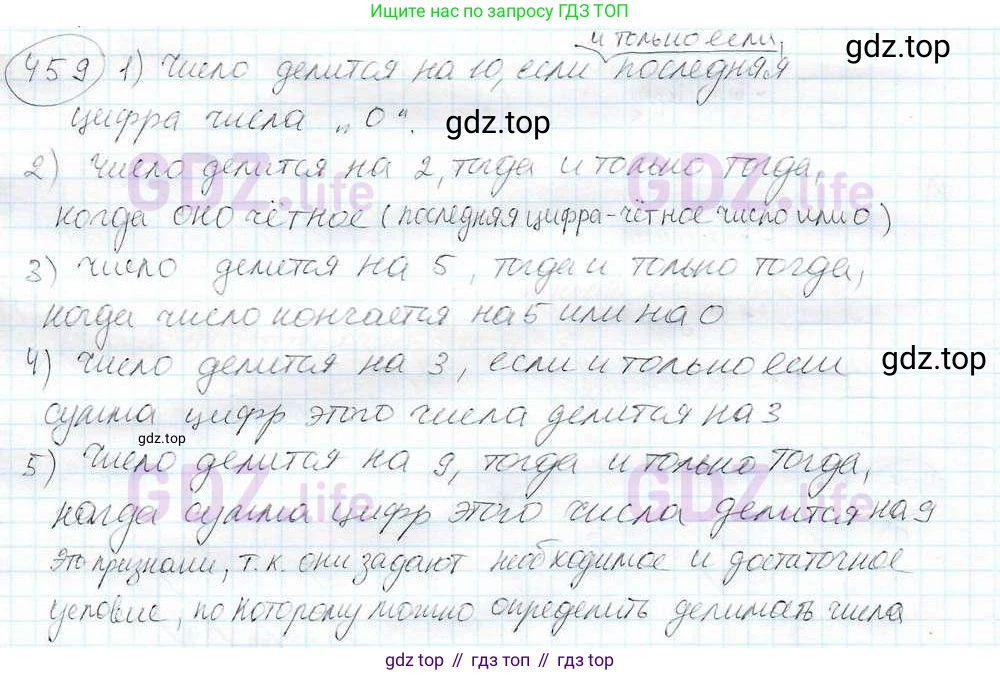 Ищите нас по запросу ГДЗ ТОП
и только если,
gdz.top
459 1) Число делится на 10, если последняя
цифра числа „0“.
gdz.top
2) Число делится на 2, тогда и только тогда,
GDZ.life GDZ.life
когда оно чётное (последняя цифра-чётное число или 0)
3) Число делится на 5, тогда и только тогда,
когда число кончается на 5 или на 0
4) Число делится на 3, если и только если
gdz.top
сумма цифр этого числа делится на 3
gdz.top
5) Число делится на 9, тогда и только тогда,
GDZ.life GDZ.life
когда сумма цифр этого числа делится на 9
Это признаки, т.к. они задают необходимое и достаточное
условие, по которому можно определить делимать числа
gdz top // гдз топ // гдз top